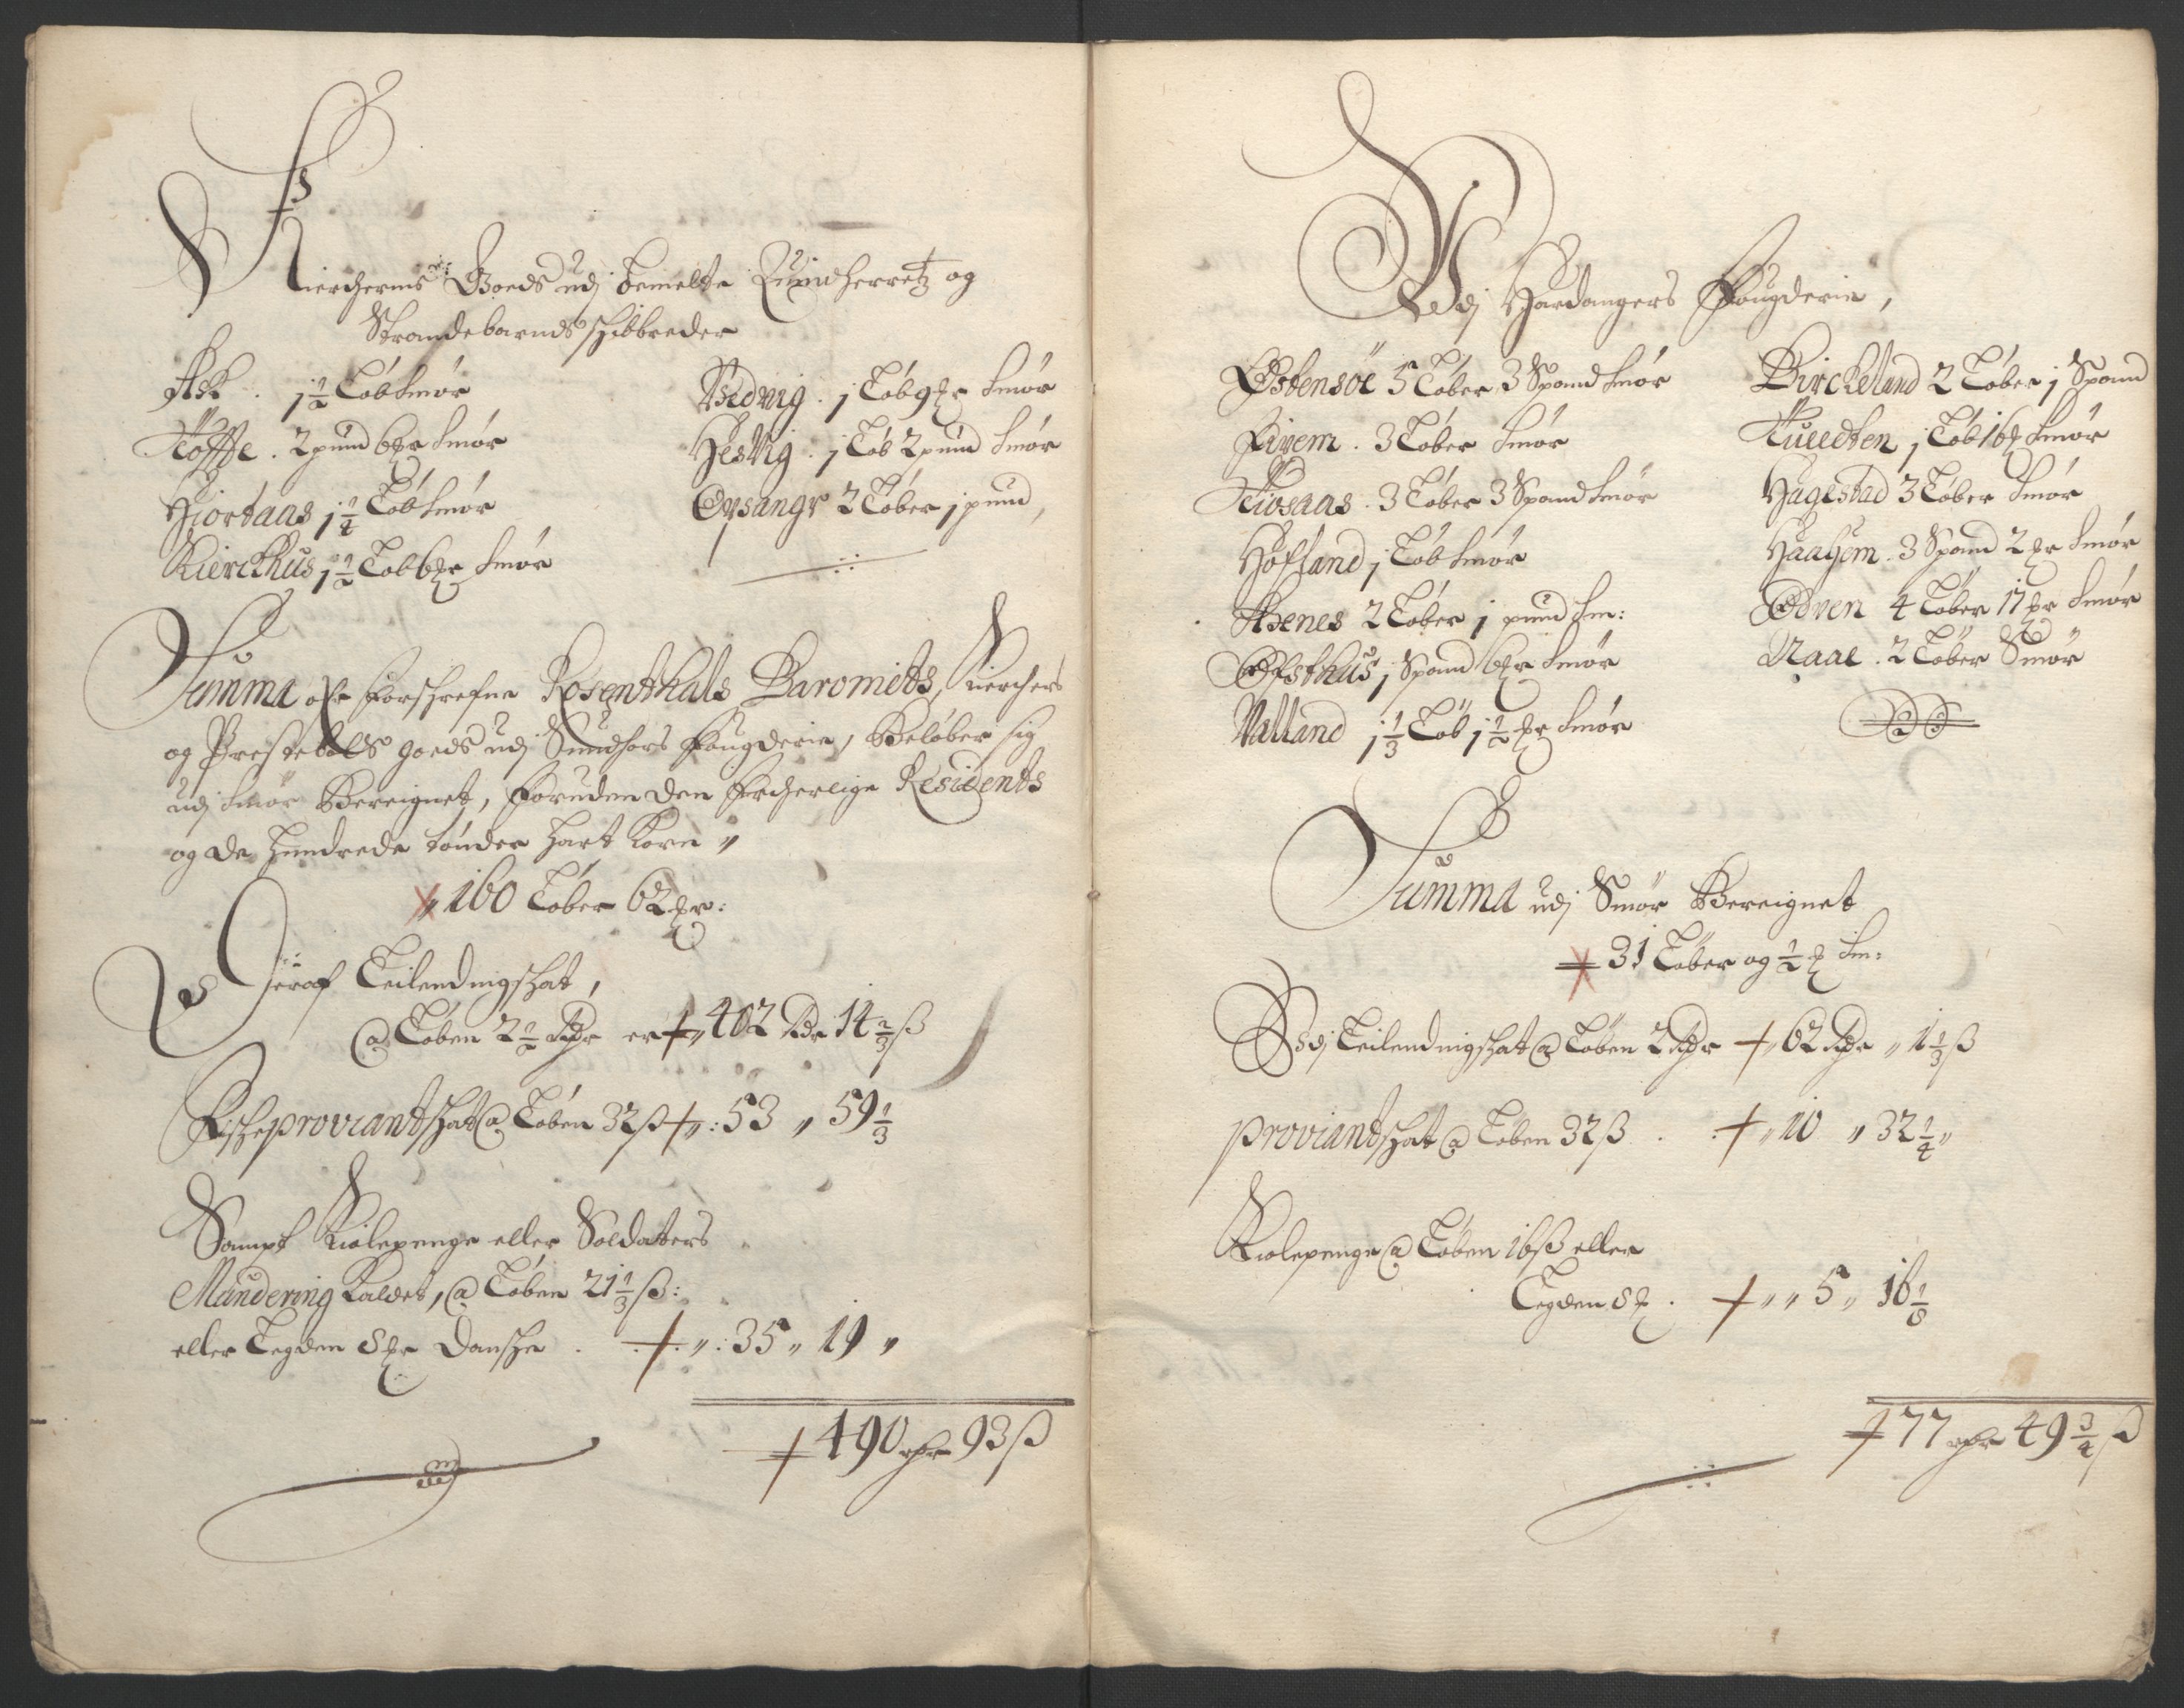 Kierchernis Goeds udj bemelte Quindherretz og
Strandebarnds schibbreder
Ask . 1 1/2 Løb Smør
Tøffte . 2 pund 6 mkr Smør
Hiortaas 1 1/4 Løb Smør
Kierckhus 1 1/2 Løb 6 mkr Smør
Nedvig . 1 Løb 9 mkr Smør
Hesvig . 1 Løb 2 pund Smør
Ørsangr 2 Løber 1 pund,
Summa ofr forschrefne Rosenthals Baronidts, Kierchers
og Prestebols goeds udj Sundhors fougderie, Beløber sig
udj Smør Bereignet, foruden den frieherlige Residents
og de Hundrede tønder Hart Korn „
„ 160 Løber 62 mkr:
Hieraf Leilendingschat,
@ Løben 2 1/2 Rdr er „ 402 Rdr 14 2/3 ß
Kiøhproviantschat @ Løben 32 ß „: 53 „ 59 1/3
Sampt Kiolepenge eller Soldaters
Mundering kaldet, @ Løben 21 1/3 ß:
eller Legden 8 mkr Dansche . „: 35 „ 19 „
490 rdr 93 ß
Udj Hardangers Fougderie,
Østensøe 5 Løber 3 Spand Smør
Fivem . 3 Løber Smør
Kiosaas . 3 Løber 3 Spand Smør
Hofland 1 Løb Smør
Axenes 2 Løber 1 pund Sm:
Ofsthus 1 Spand 6 mkr Smør
Valland 1 1/3 Løb 1 1/2 mkr Smør
Birckeland 2 Løber 1 Spand
Tueedten 1 Løb 16 mk Smør
Hagestad 3 Løber Smør
Haahem . 3 Spand 2 mkr Smør
Odven 4 Løber 17 mkr Smør
Naae . 2 Løber Smør
Summa udj Smør Bereignet
31 Løber og 1/2 mk Sm:
Udj Leilendingschat @ Løben 2 Rdr „ 62 Rdr „ 1 1/3 ß
Proviantschat @ Løben 32 ß . . „ 10 „ 32 1/4 „
Kiolepenge @ Løben 16 ß eller
Legden 8 mk . „ „ 5 „ 16 1/8
77 rdr 49 3/4 ß